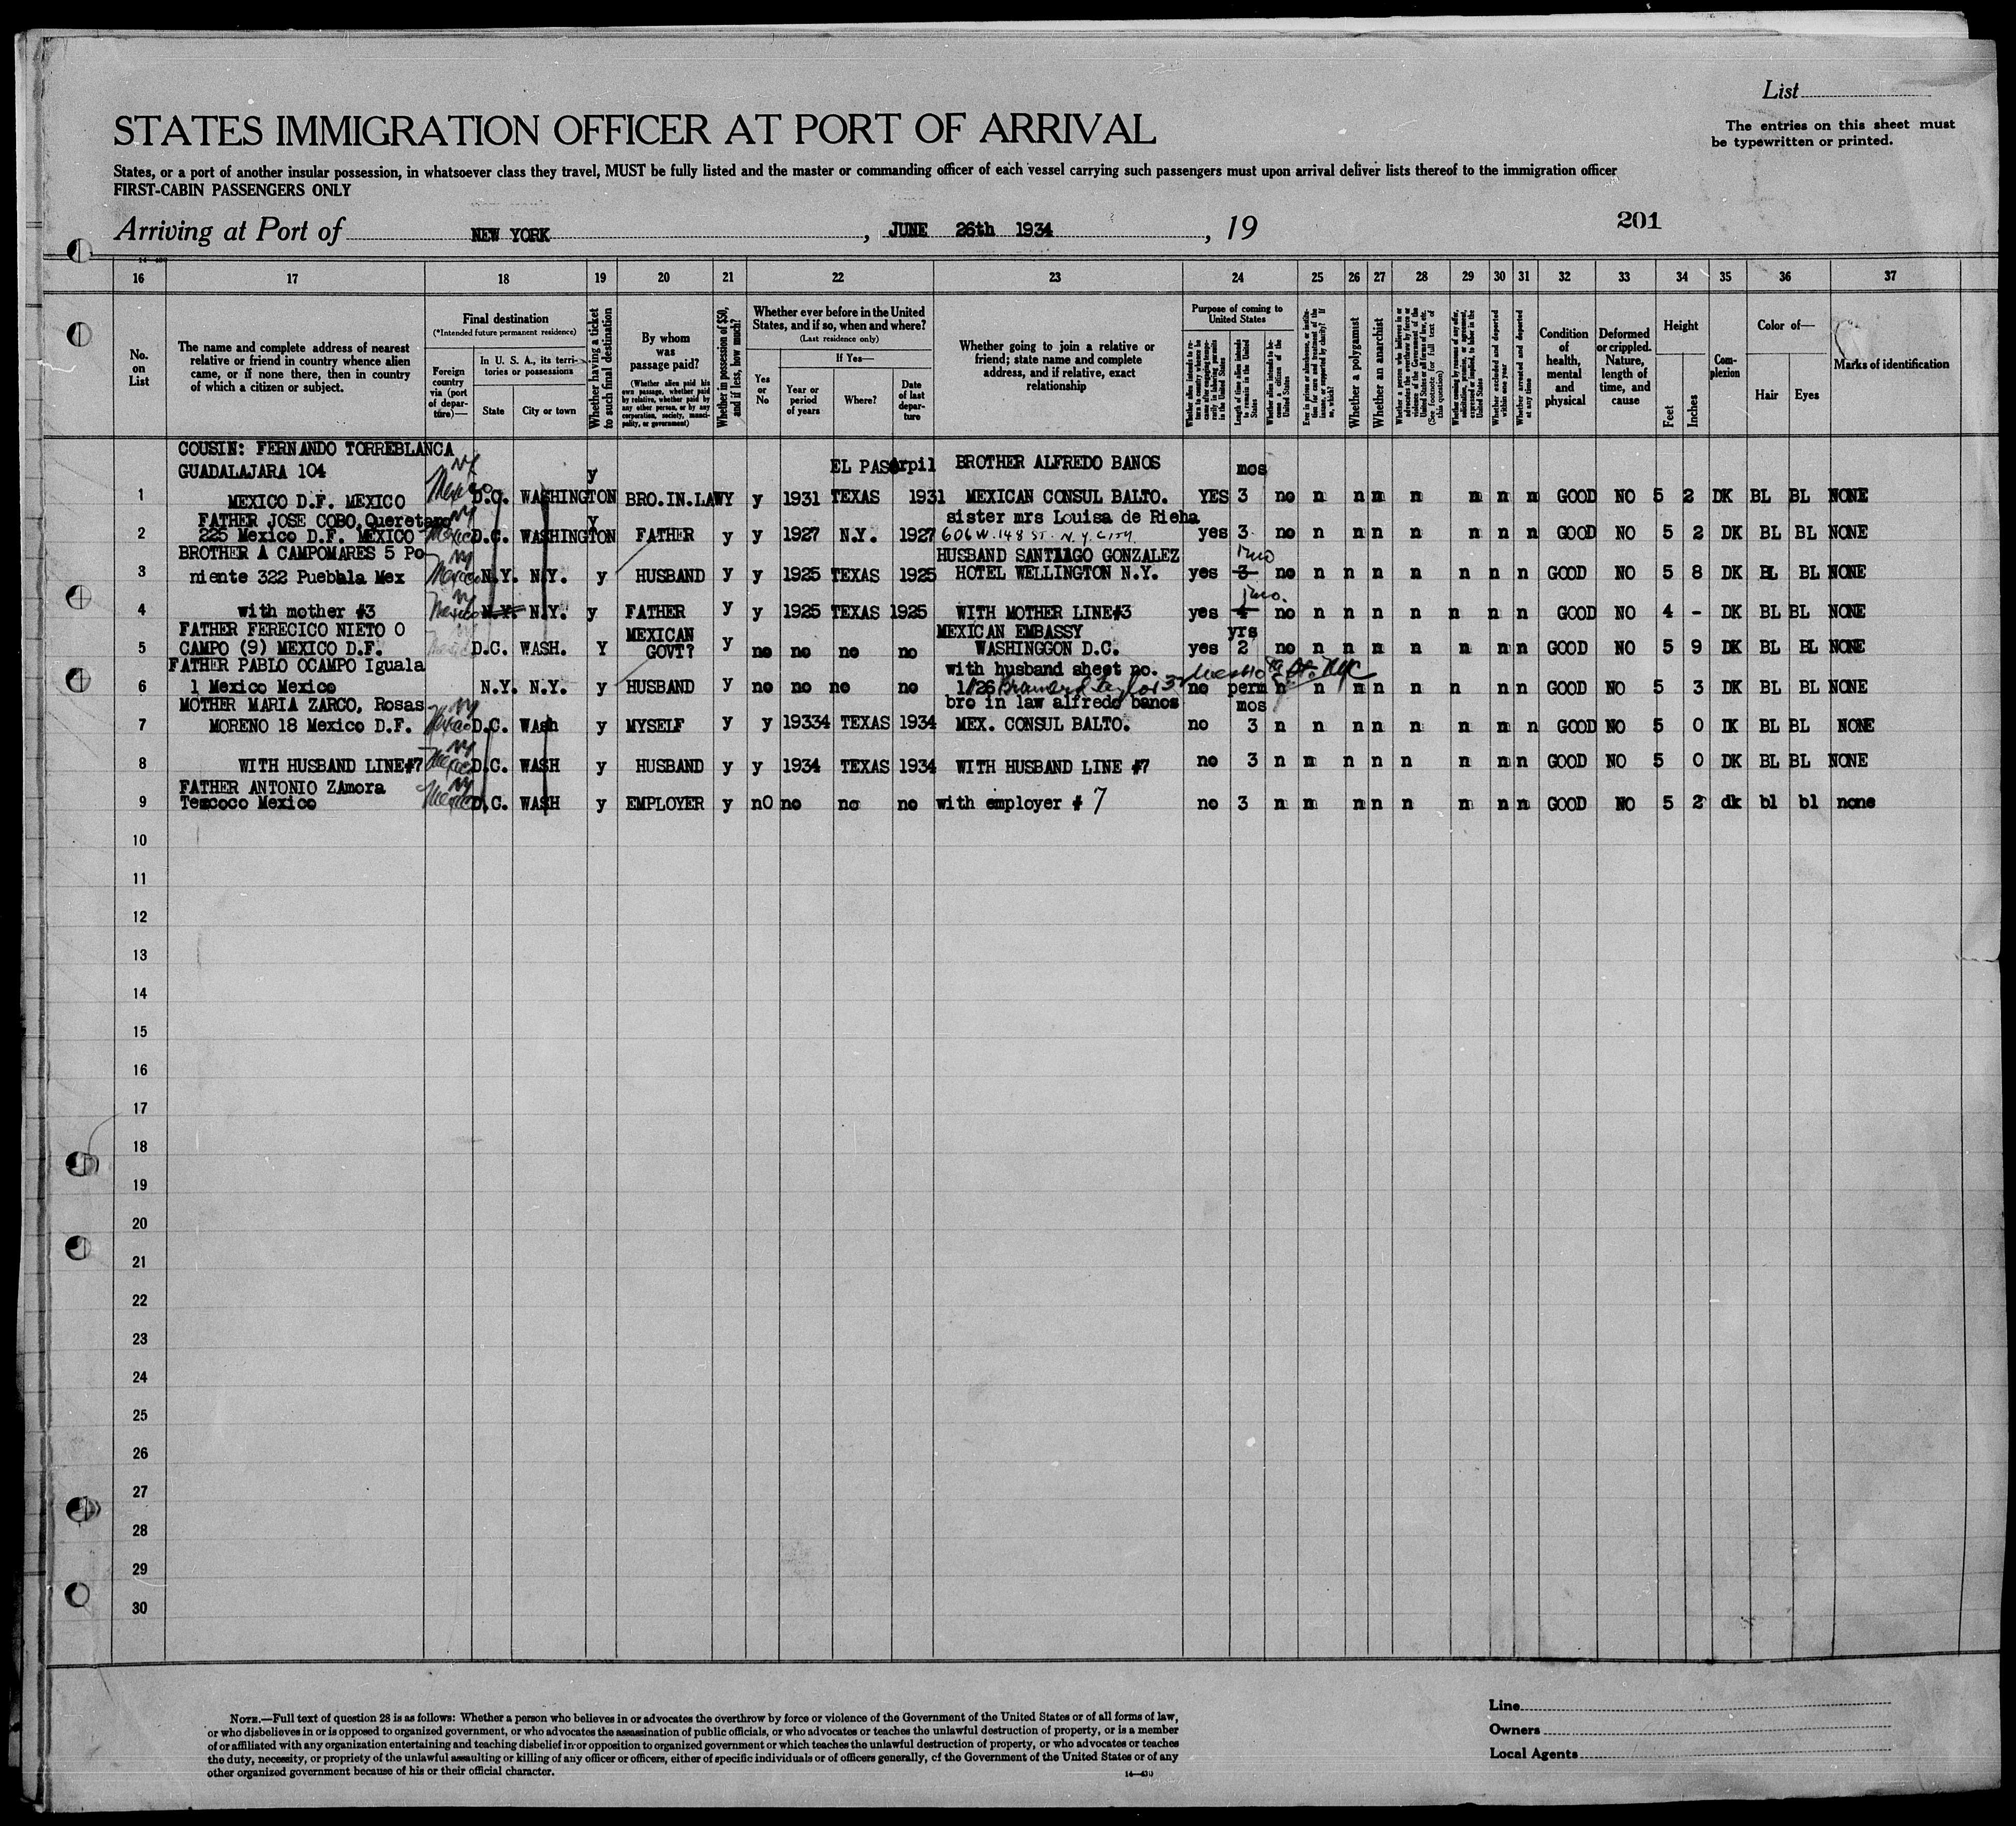 List
STATES IMMIGRATION OFFICER AT PORT OF ARRIVAL
The entries on this sheet must
be typewritten or printed.
States, or a port of another insular possession, in whatsoever class they travel, MUST be fully listed and the master or commanding officer of each vessel carrying such passengers must upon arrival deliver lists thereof to the immigration officer
FIRST-CABIN PASSENGERS ONLY
Arriving at Port of NEW YORK, JUNE 26th 1934, 19
201
16 17 18 19 20 21 22 23 24 25 26 27 28 29 30 31 32 33 34 35 36 37
No. on List
The name and complete address of nearest relative or friend in country whence alien came, or if none there, then in country of which a citizen or subject.
Final destination
(*Intended future permanent residence)
Foreign country via (port of departure)—
In U. S. A., its territories or possessions
State
City or town
Whether having a ticket to such final destination
By whom was passage paid?
(Whether alien paid his own passage, whether paid by relative, whether paid by any other person, or by any corporation, society, municipality, or government)
Whether in possession of $50, and if less, how much?
Whether ever before in the United States, and if so, when and where?
(Last residence only)
Yes or No
If Yes—
Year or period of years
Where?
Date of last departure
Whether going to join a relative or friend; state name and complete address, and if relative, exact relationship
Purpose of coming to United States
Length of time alien intends to remain in the United States
Whether alien intends to become a citizen of the United States
Whether a polygamist
Whether an anarchist
Whether excluded and deported within one year
Whether arrested and deported at any time
Condition of health, mental and physical
Deformed or crippled. Nature, length of time, and cause
Height
Feet
Inches
Complexion
Color of—
Hair
Eyes
Marks of identification
COUSIN: FERNANDO TORREBLANCA
GUADALAJARA 104 NY y EL PASO Arpil BROTHER ALFREDO BANOS mos
1 MEXICO D.F. MEXICO Mexico D.C. WASHINGTON BRO.IN.LAW Y y 1931 TEXAS 1931 MEXICAN CONSUL BALTO. YES 3 no n n n n n n n GOOD NO 5 2 DK BL BL NONE
FATHER JOSE COBO, Queretaro NY y sister mrs Louisa de Rieha
2 225 Mexico D.F. MEXICO Mexico D.C. WASHINGTON FATHER y y 1927 N.Y. 1927 606 W. 148 ST. N.Y. CITY yes 3 no n n n n n n n GOOD NO 5 2 DK BL BL NONE
BROTHER A CAMPOMARES 5 Po- NY HUSBAND SANTIAGO GONZALEZ 1 mo
3 niente 322 Puebhla Mex Mexico N.Y. N.Y. y HUSBAND y y 1925 TEXAS 1925 HOTEL WELLINGTON N.Y. yes 3 no n n n n n n n GOOD NO 5 8 DK BL BL NONE
NY 1 mo.
4 with mother #3 Mexico N.Y. N.Y. y FATHER y y 1925 TEXAS 1925 WITH MOTHER LINE#3 yes 4 no n n n n n n n GOOD NO 4 - DK BL BL NONE
FATHER FERECICO NIETO O MEXICAN MEXICAN EMBASSY yrs
5 CAMPO (9) MEXICO D.F. Mexico D.C. WASH. Y GOVT? y no no no no WASHINGGON D.C. yes 2 no n n n n n n n GOOD NO 5 9 DK BL BL NONE
FATHER PABLO OCAMPO Iguala with husband sheet no. St. NYC
6 1 Mexico Mexico N.Y. N.Y. y HUSBAND y no no no no 1/26 no perm n n n n n n n n GOOD NO 5 3 DK BL BL NONE
MOTHER MARIA ZARCO, Rosas NY bro in law alfredo banos mos
7 MORENO 18 Mexico D.F. Mexico D.C. WAsh y MYSELF y y 19334 TEXAS 1934 MEX. CONSUL BALTO. no 3 n n n n n n n n GOOD NO 5 0 DK BL BL NONE
NY
8 WITH HUSBAND LINE#7 Mexico D.C. WASH y HUSBAND y y 1934 TEXAS 1934 WITH HUSBAND LINE #7 no 3 n n n n n n n n GOOD NO 5 0 DK BL BL NONE
FATHER ANTONIO ZAmora NY
9 Temcoco Mexico Mexico D.C. WASH y EMPLOYER y nO no no no with employer # 7 no 3 n n n n n n n n GOOD NO 5 2 dk bl bl none
10
11
12
13
14
15
16
17
18
19
20
21
22
23
24
25
26
27
28
29
30
NOTE.—Full text of question 28 is as follows: Whether a person who believes in or advocates the overthrow by force or violence of the Government of the United States or of all forms of law,
or who disbelieves in or is opposed to organized government, or who advocates the assassination of public officials, or who advocates or teaches the unlawful destruction of property, or is a member
of or affiliated with any organization entertaining and teaching disbelief in or opposition to organized government or which teaches the unlawful destruction of property, or who advocates or teaches
the duty, necessity, or propriety of the unlawful assaulting or killing of any officer or officers, either of specific individuals or of officers generally, of the Government of the United States or of any
other organized government because of his or their official character.
14—430
Line
Owners
Local Agents